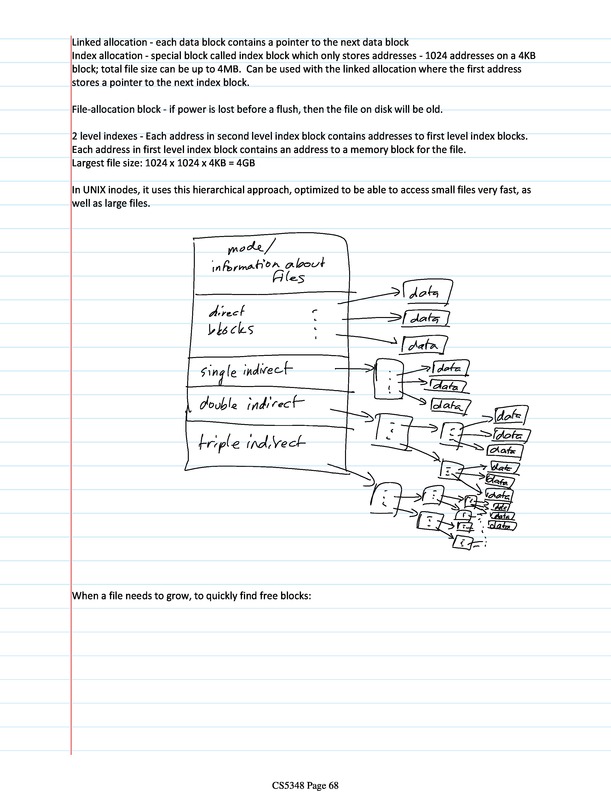 Linked allocation - each data block contains a pointer to the next data block
Index allocation - special block called index block which only stores addresses - 1024 addresses on a 4KB
block; total file size can be up to 4MB.  Can be used with the linked allocation where the first address
stores a pointer to the next index block.
File-allocation block - if power is lost before a flush, then the file on disk will be old.
2 level indexes - Each address in second level index block contains addresses to first level index blocks.
Each address in first level index block contains an address to a memory block for the file.
Largest file size: 1024 x 1024 x 4KB = 4GB
In UNIX inodes, it uses this hierarchical approach, optimized to be able to access small files very fast, as
well as large files.
mode/
information about
files
data
direct
data
blocks
data
single indirect
data
data
double indirect
data
data
data
triple indirect
data
data
data
data
data
data
data
When a file needs to grow, to quickly find free blocks:
CS5348 Page 68